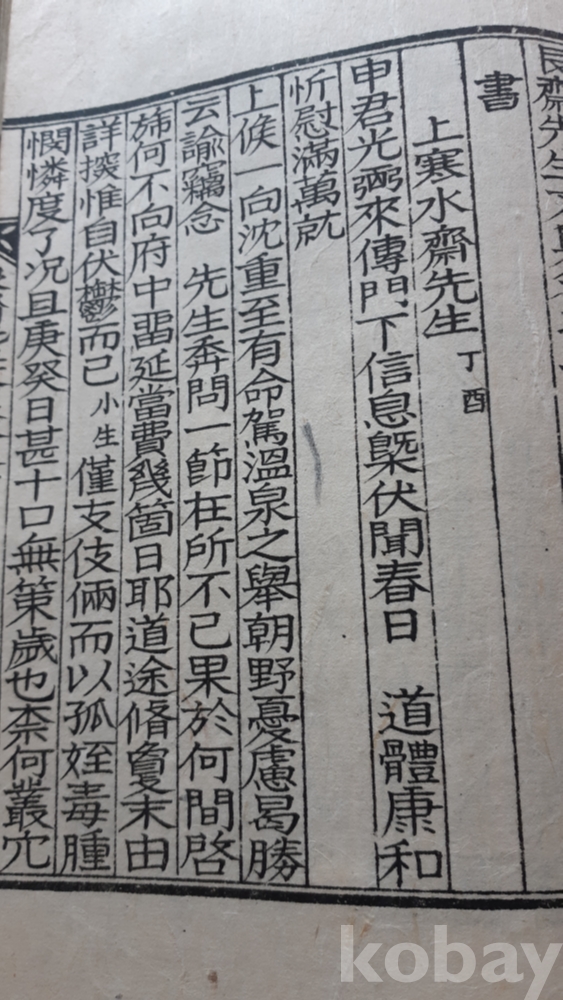 艮齋先生文集卷之
書
上寒水齋先生 丁酉
申君光弼來傳門下信息槩伏聞春日 道體康和
忻慰滿萬就
上候一向沈重至有命駕溫泉之擧朝野憂慮曷勝
云諭竊念 先生奔問一節在所不已果於何間啓
斾何不向府中畱延當費幾箇日耶道途脩敻末由
詳探惟自伏鬱而已 小生 僅支伎倆而以孤姪毒腫
憫憐度了况且庚癸日甚十口無策歲也柰何叢宂
kobay